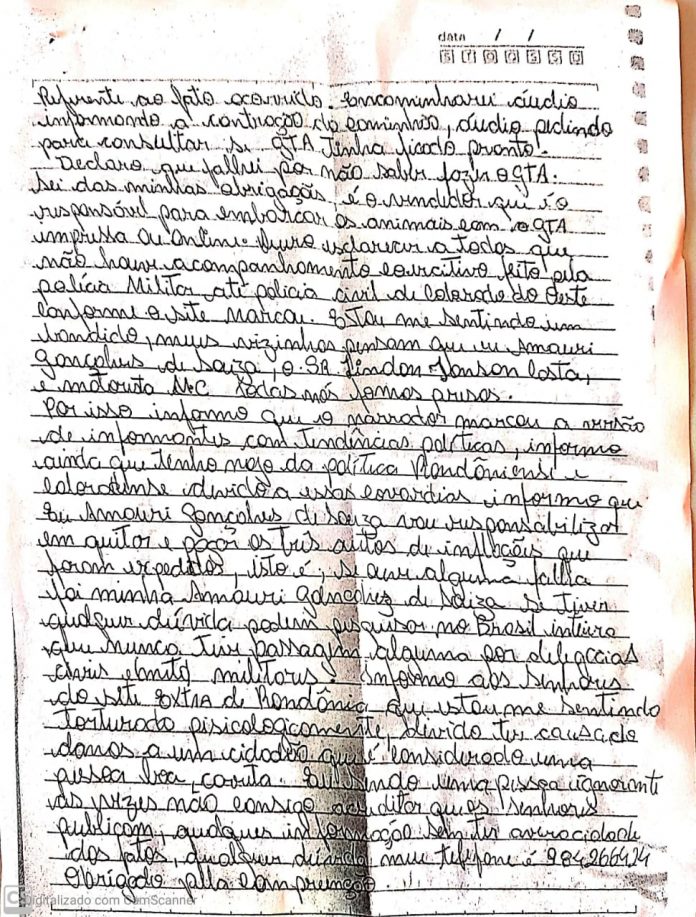 data / /
S T Q Q S S D
Referente ao fato ocorrido. Encaminharei áudio
informando a contração do caminhão, áudio pedindo
para consultar se GTA tinha ficado pronto.
Declaro que falhei por não saber fazer o GTA.
Sei das minhas obrigações, é o vendedor que é o
responsável para embarcar os animais com o GTA
impressa ou online. Quero esclarecer a todos que
não houve acompanhamento coercitivo feito pela
polícia Militar até polícia civil de Colorado do Oeste
conforme o site marcou. Estou me sentindo um
bandido, meus vizinhos pensam que eu Amauri
Gonçalves de Souza, o SR. Lindon Jonson Costa,
e motorista M.C todas nós fomos presos.
Por isso informo que o narrador marcou a versão
de informantes com tendências políticas, informo
ainda que tenho nojo da política Rondôniense e
coloradense devido a essas covardias, informo que
Eu Amauri Gonçalves de Souza vou responsabilizar
em quitar e pagar os três autos de infrações que
foram expedidos, isto é, se ouve alguma falha
foi minha Amauri Gonçalvez de Souza se tiver
qualquer dúvida podem pesquisar no Brasil inteiro
que nunca tive passagem alguma por delegacias
civis e militares. Informo aos senhores
do site EXTRA de Rondônia que estou me sentindo
torturado pisicologicamente, devido ter causado
danos a um cidadão que é considerado uma
pessoa boa, correta. Eu sendo uma pessoa ignorante
às vezes não consigo acreditar que os senhores
publicam, qualques informação sem ter averacidade
dos fatos, qualquer dúvida meu telefone é 984266424
Obrigado pela compreenção.
Digitalizado com CamScanner